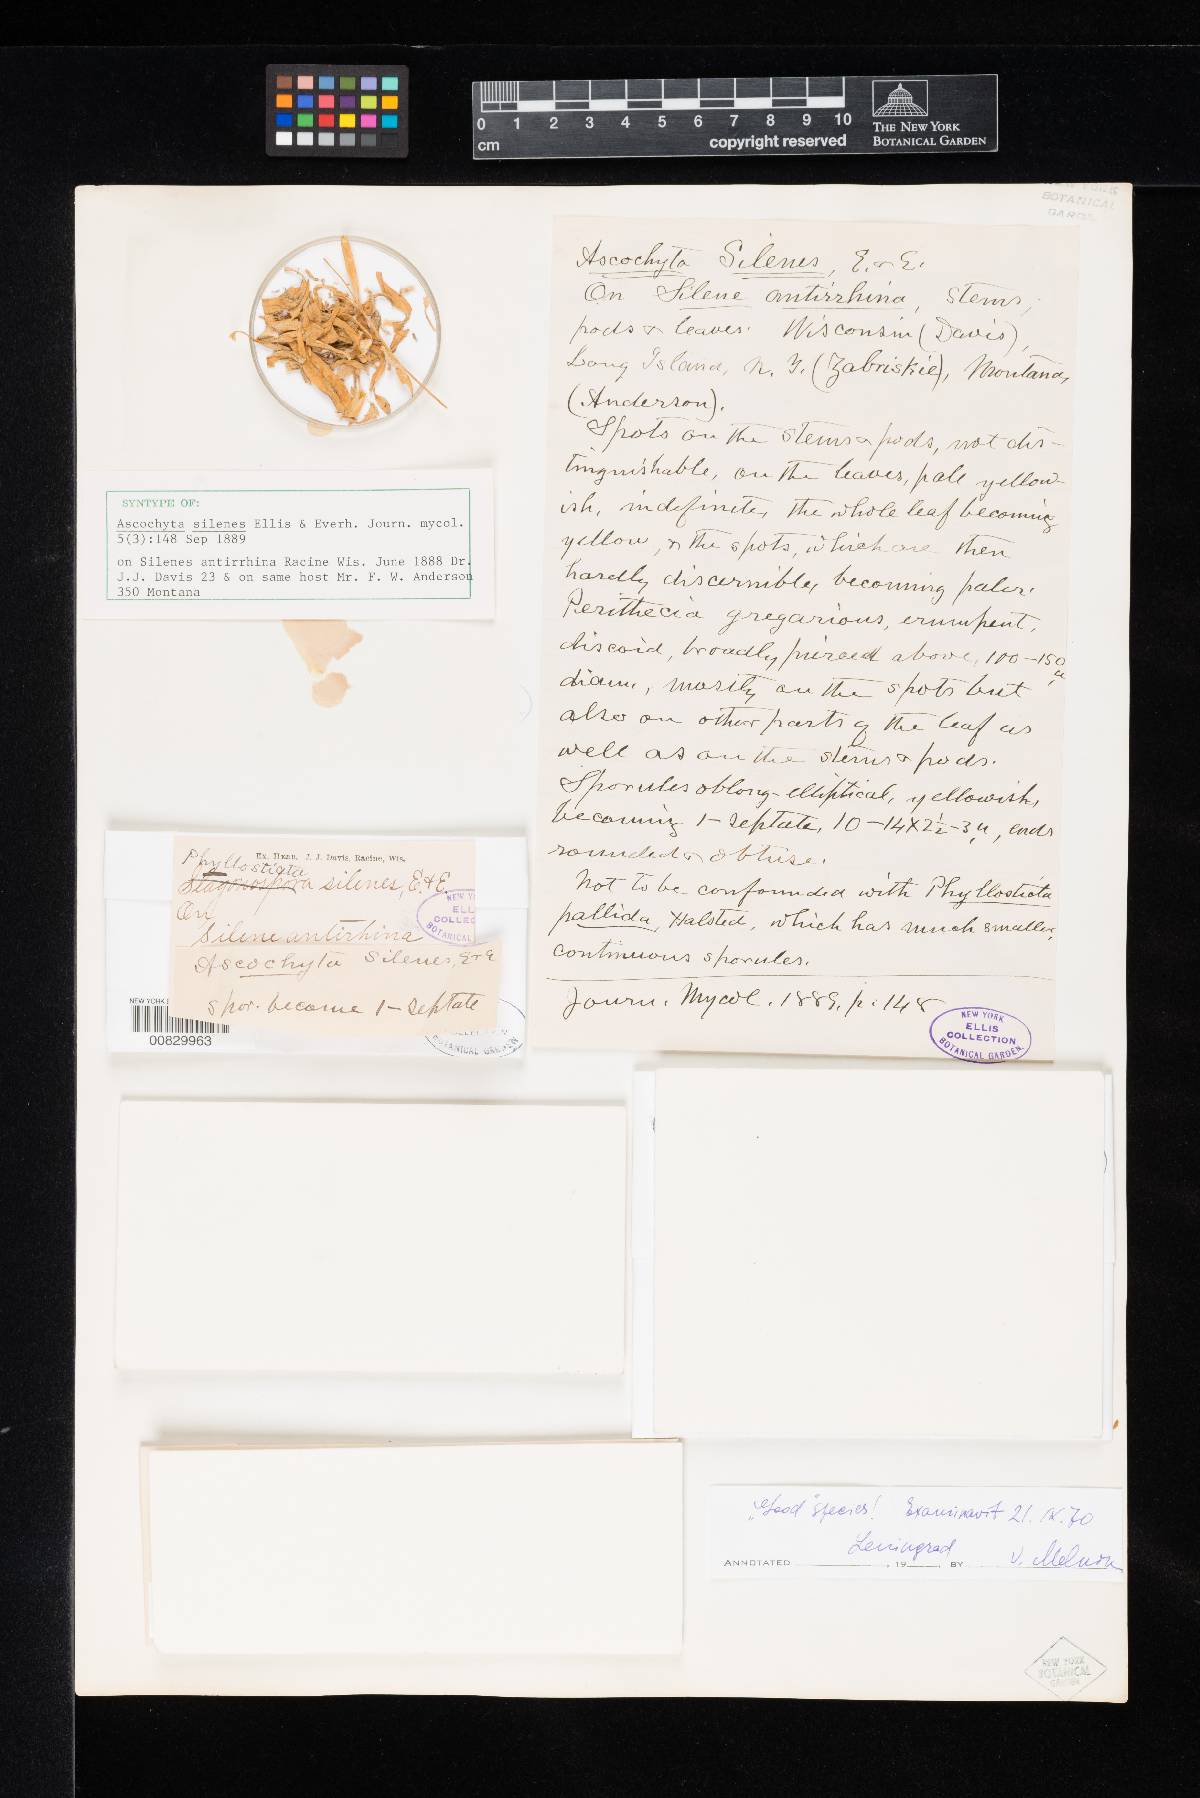 0 1 2 3 4 5 6 7 8 9 10
cm
copyright reserved
THE NEW YORK
BOTANICAL GARDEN
BOTANICAL
Ascochyta Silenes, E. & E.
On Silene antirrhina, stems,
pods & leaves. Wisconsin (Davis),
Long Island, N. Y. (Zabriskie), Montana,
(Anderson).
Spots on the stems & pods, not dis-
tinguishable, on the leaves, pale yellow-
ish, indefinite, the whole leaf becoming
yellow, & the spots, which are then
hardly discernible, becoming paler.
Perithecia gregarious, erumpent,
discoid, broadly pierced above, 100–150 µ
diam., mostly on the spots but
also on other parts of the leaf as
well as on the stems & pods.
Sporules oblong-elliptical, yellowish,
becoming 1-septate, 10–14 X 2½–3 µ, ends
rounded & obtuse.
Not to be confounded with Phyllosticta
pallida, Halsted, which has much smaller,
continuous sporules.
Journ. Mycol. 1889, p. 148
NEW YORK
ELLIS
COLLECTION
BOTANICAL GARDEN.
SYNTYPE OF:
Ascochyta silenes Ellis & Everh. Journ. mycol.
5(3):148 Sep 1889
on Silenes antirrhina Racine Wis. June 1888 Dr.
J.J. Davis 23 & on same host Mr. F. W. Anderson
350 Montana
Ex. Herb. J. J. Davis, Racine, Wis.
Phyllosticta
Stagonospora silenes, E. & E.
On
Silene antirhina
NEW Y
ELL
COLLEC
BOTANICAL
Ascochyta Silenes, E & E
spor. become 1-septate
NEW YORK
00829963
BOTANICAL GARDEN
"Good" species! Examinavit 21. IX. 70
Leningrad
ANNOTATED , 19 BY V. Melnik
NEW YORK
BOTANICAL
GARDEN